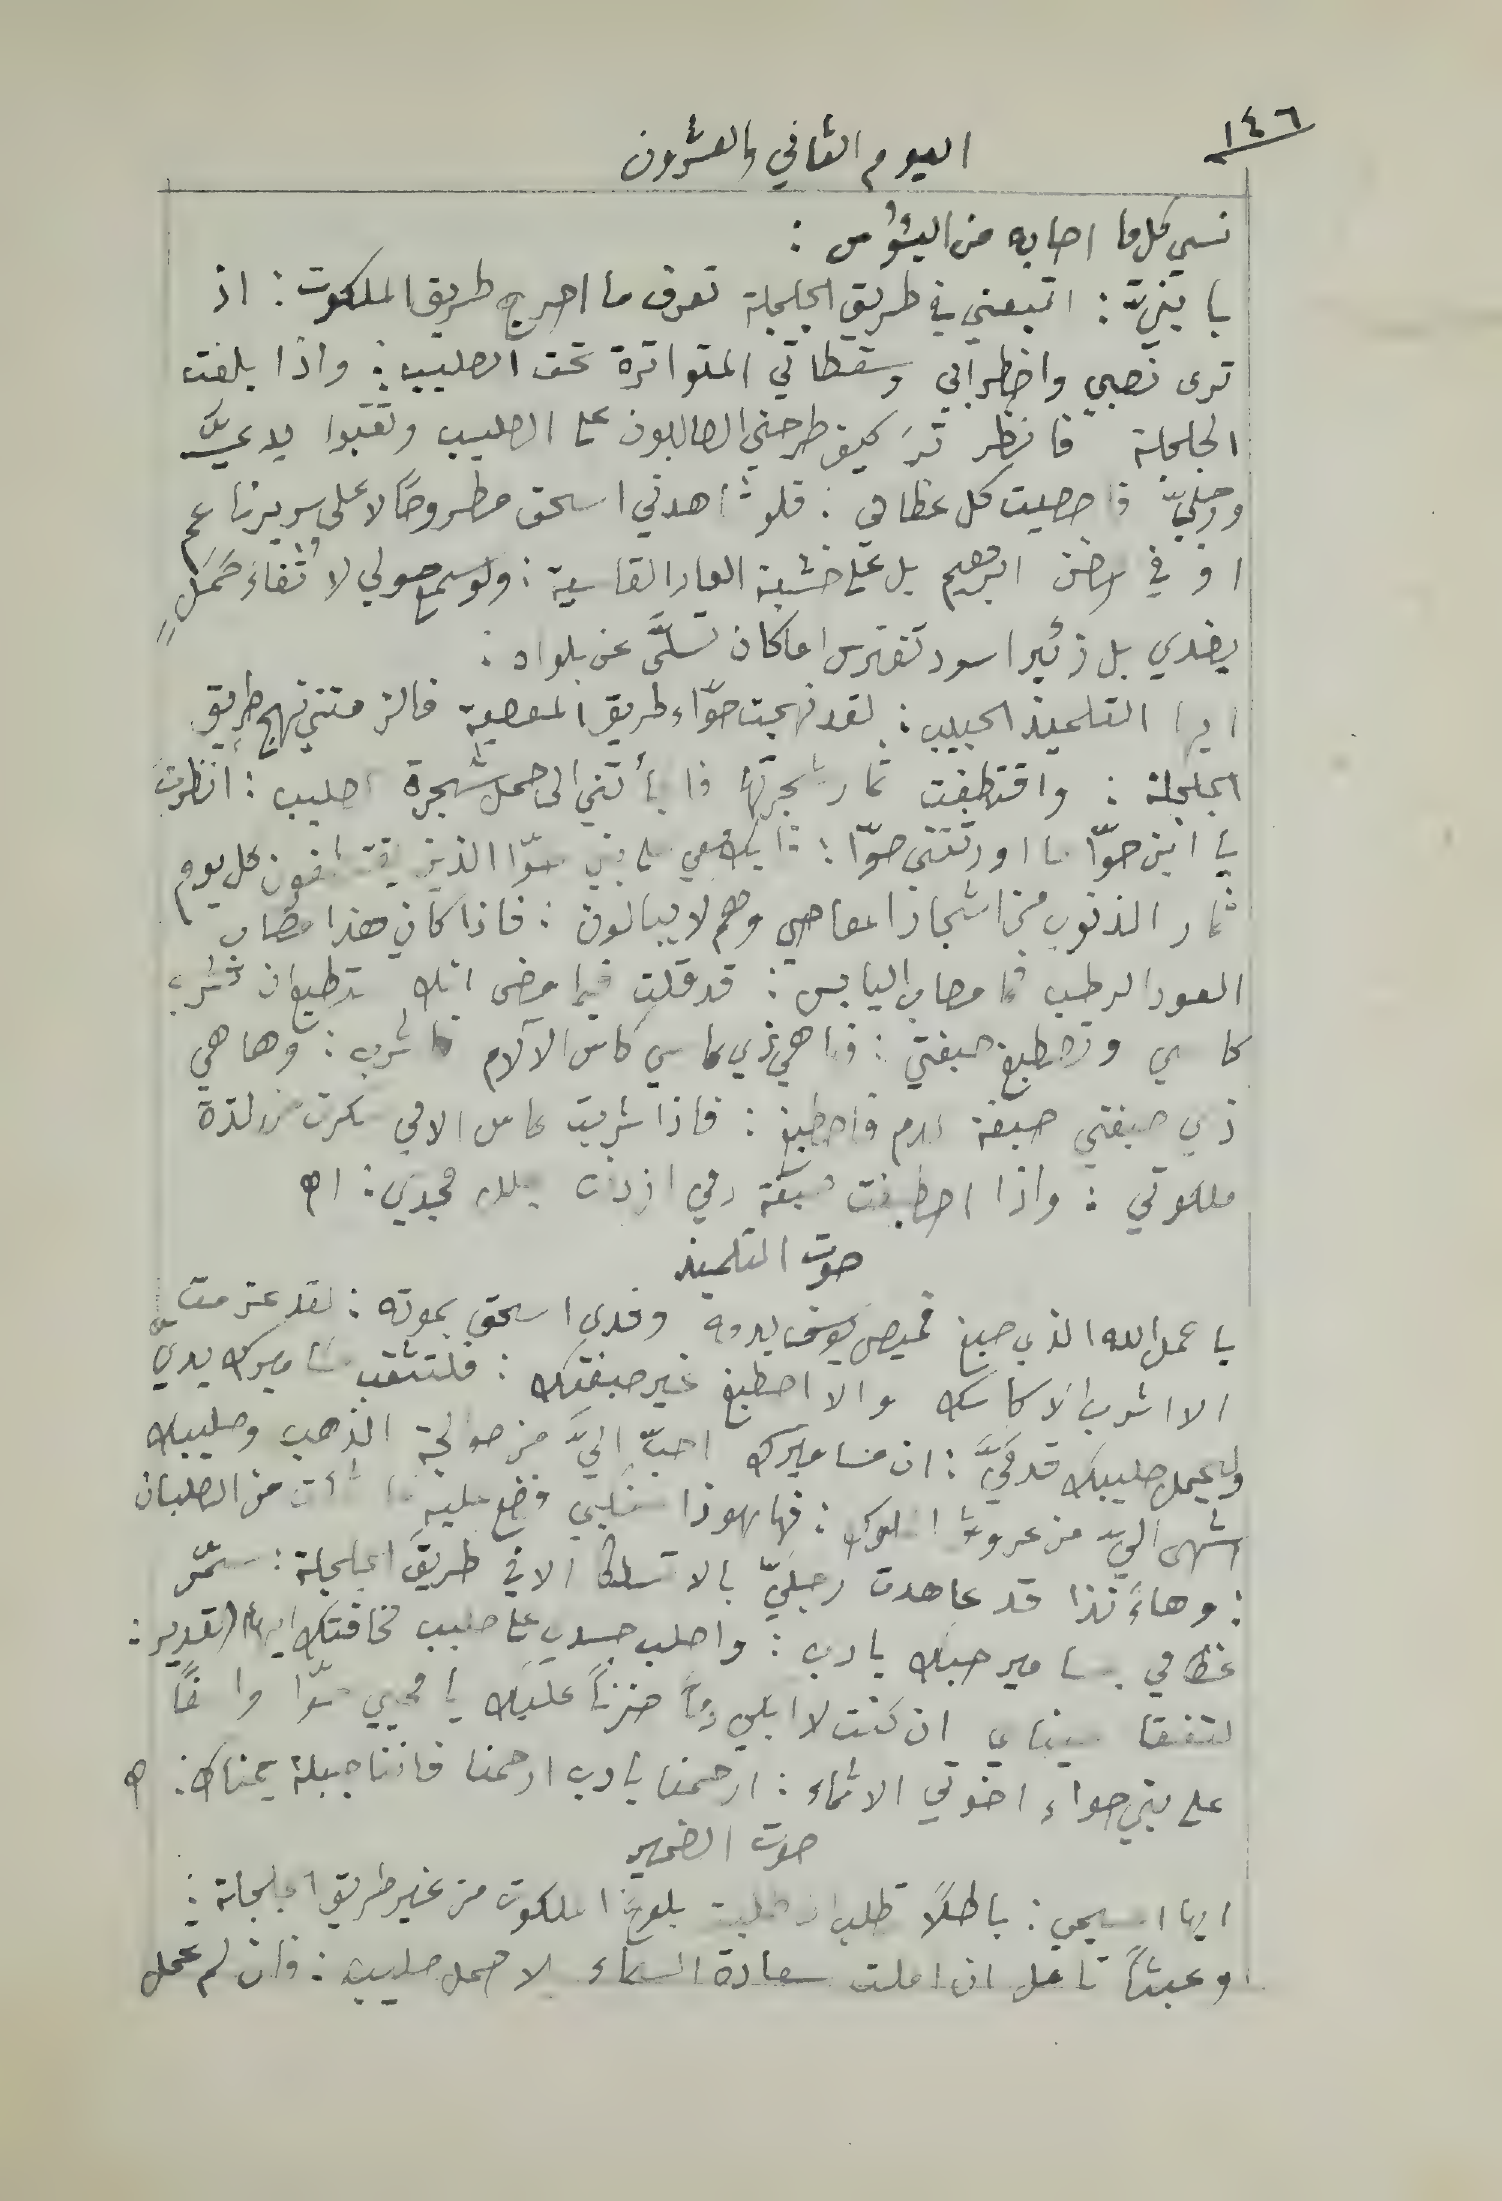 ١٤٦
اليوم الثاني والعشرون
نسي كل ما اصابه من البؤس :
يا بنيّ : اتبعني في طريق الجلجلة تعرف ما احرج طريق الملكوت : اذ
ترى تعبي واضطرابي وسقطاتي المتواترة تحت الصليب : واذا بلغت
الجلجلة فانظر ترَ كيف طرحني الصالبون على الصليب وثقبوا يديَّ
ورجليّ فاحصيت كل عظامي : فلو شاهدني اسحق مطروحًا لا على سرير ناعم
او في حضن ابرهيم بل على خشبة العار القاسية : ولو سمع حولي لا ثغاءَ حَمَلٍ
يفدي بل زئير اسود تفترس اما كان تسلَّى عن بلواه :
ايها التلميذ الحبيب : لقد نهجت حوّاء طريق المعصية فالزمتني نهج طريق
الجلجلة : واقتطفت ثمار شجرتها فالجأتني الى حمل شجرة الصليب : انظرتَ
يا ابن حوّا ما اورثتني حوّا : بني حوّا الذين يقتطفون كل يوم
ثمار الذنوب من اشجار المعاصي وهم لا يبالون : فاذا كان هذا مصاب
العود الرطب فما مصاب اليابس : قد قلت فيما مضى انك تستطيع ان تشرب
كاسي وتصطبغ صبغتي : فها هي ذي كاسي كاس الآلام فاشرب : وها هي
ذي صبغتي صبغة الدم فاصطبغ : فاذا شربت كاس الامي سكرت من لذة
ملكوتي : واذا اصطبغت صبغة دمي ازدنت بحلل مجدي : اه
صوت التلميذ
يا حمل الله الذي صبغ قميص يوسف بدمه وفدى اسحق بموته : لقد عزمت
الا اشرب الا كاسك والا اصطبغ غير صبغتك : فلتثقب مساميرك يديّ
وليحمل صليبك قدميَّ : ان مساميرك احبّ اليَّ من صوالجة الذهب وصليبك
اشهى اليّ من عروش الملوك : فها هوذا منكبي فضع عليه ما شئت من الصلبان
: وهاءَنذا قد عاهدت رجليّ بالا تسلكا الا في طريق الجلجلة : سمّر
عظامي بمسامير حبك يا رب : واصلب جسدي على صليب مخافتك ايها القدير :
لتفقا عيناي ان كنت لا ابكي دمًا حزنًا عليك يا محيي حوّا واسفًا
على بني حواء اخوتي الاثماء : ارحمنا يا رب ارحمنا فاننا جبلة يمناك : اه
صوت الضمير
ايها المسيحي : باطلًا تطلب ان طلبت بلوغ الملكوت من غير طريق الجلجلة :
وعبثًا تامل ان املت سعادة السماء بلا حمل صليب : فان لم تحمل